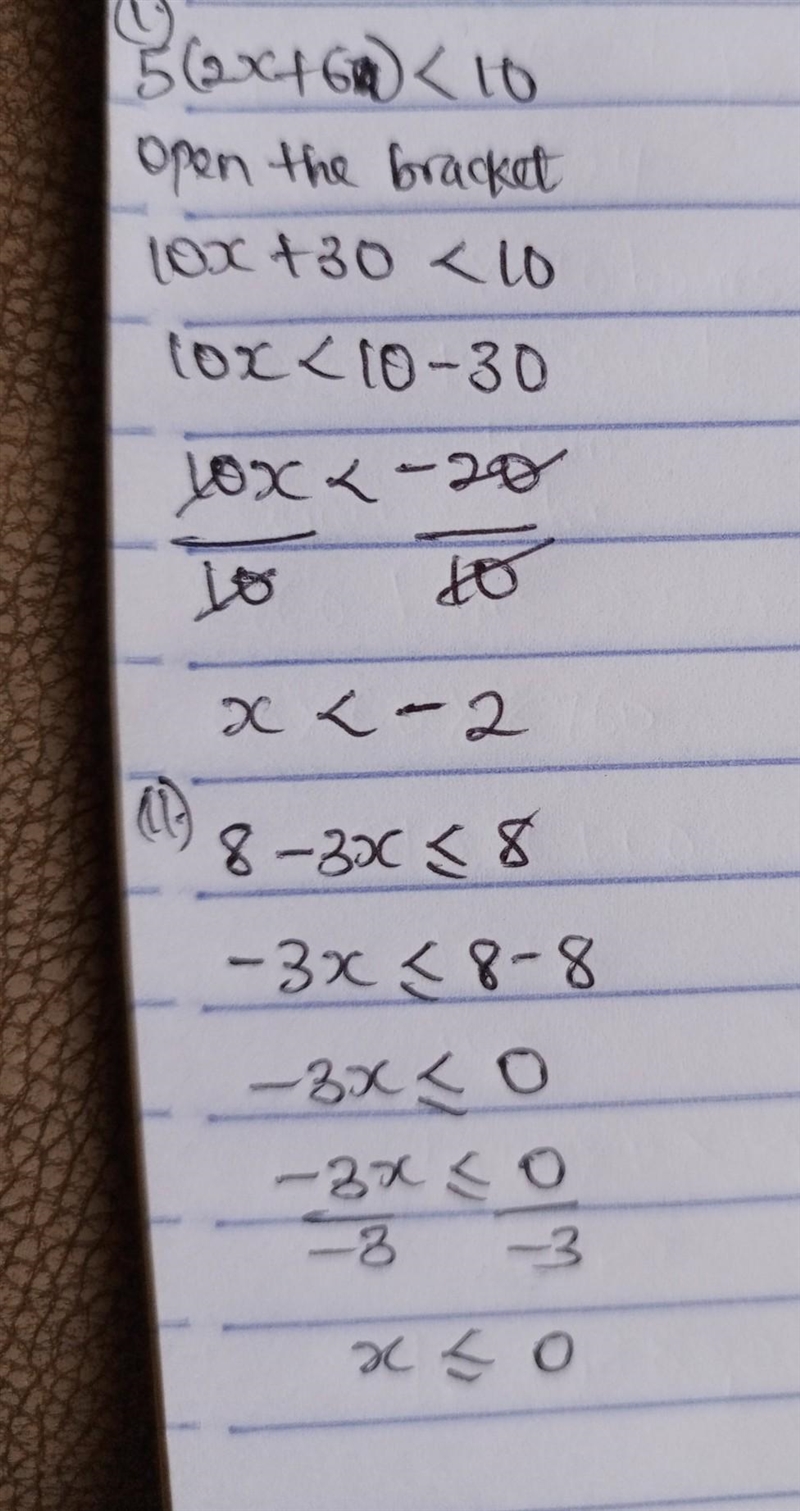 (I.)
5(2x+6) < 10
Open the bracket
10x + 30 < 10
10x < 10 - 30
10x < -20
10 10
x < -2
(II.)
8 - 3x ≤ 8
-3x ≤ 8 - 8
-3x ≤ 0
-3x ≤ 0
-3 -3
x ≤ 0